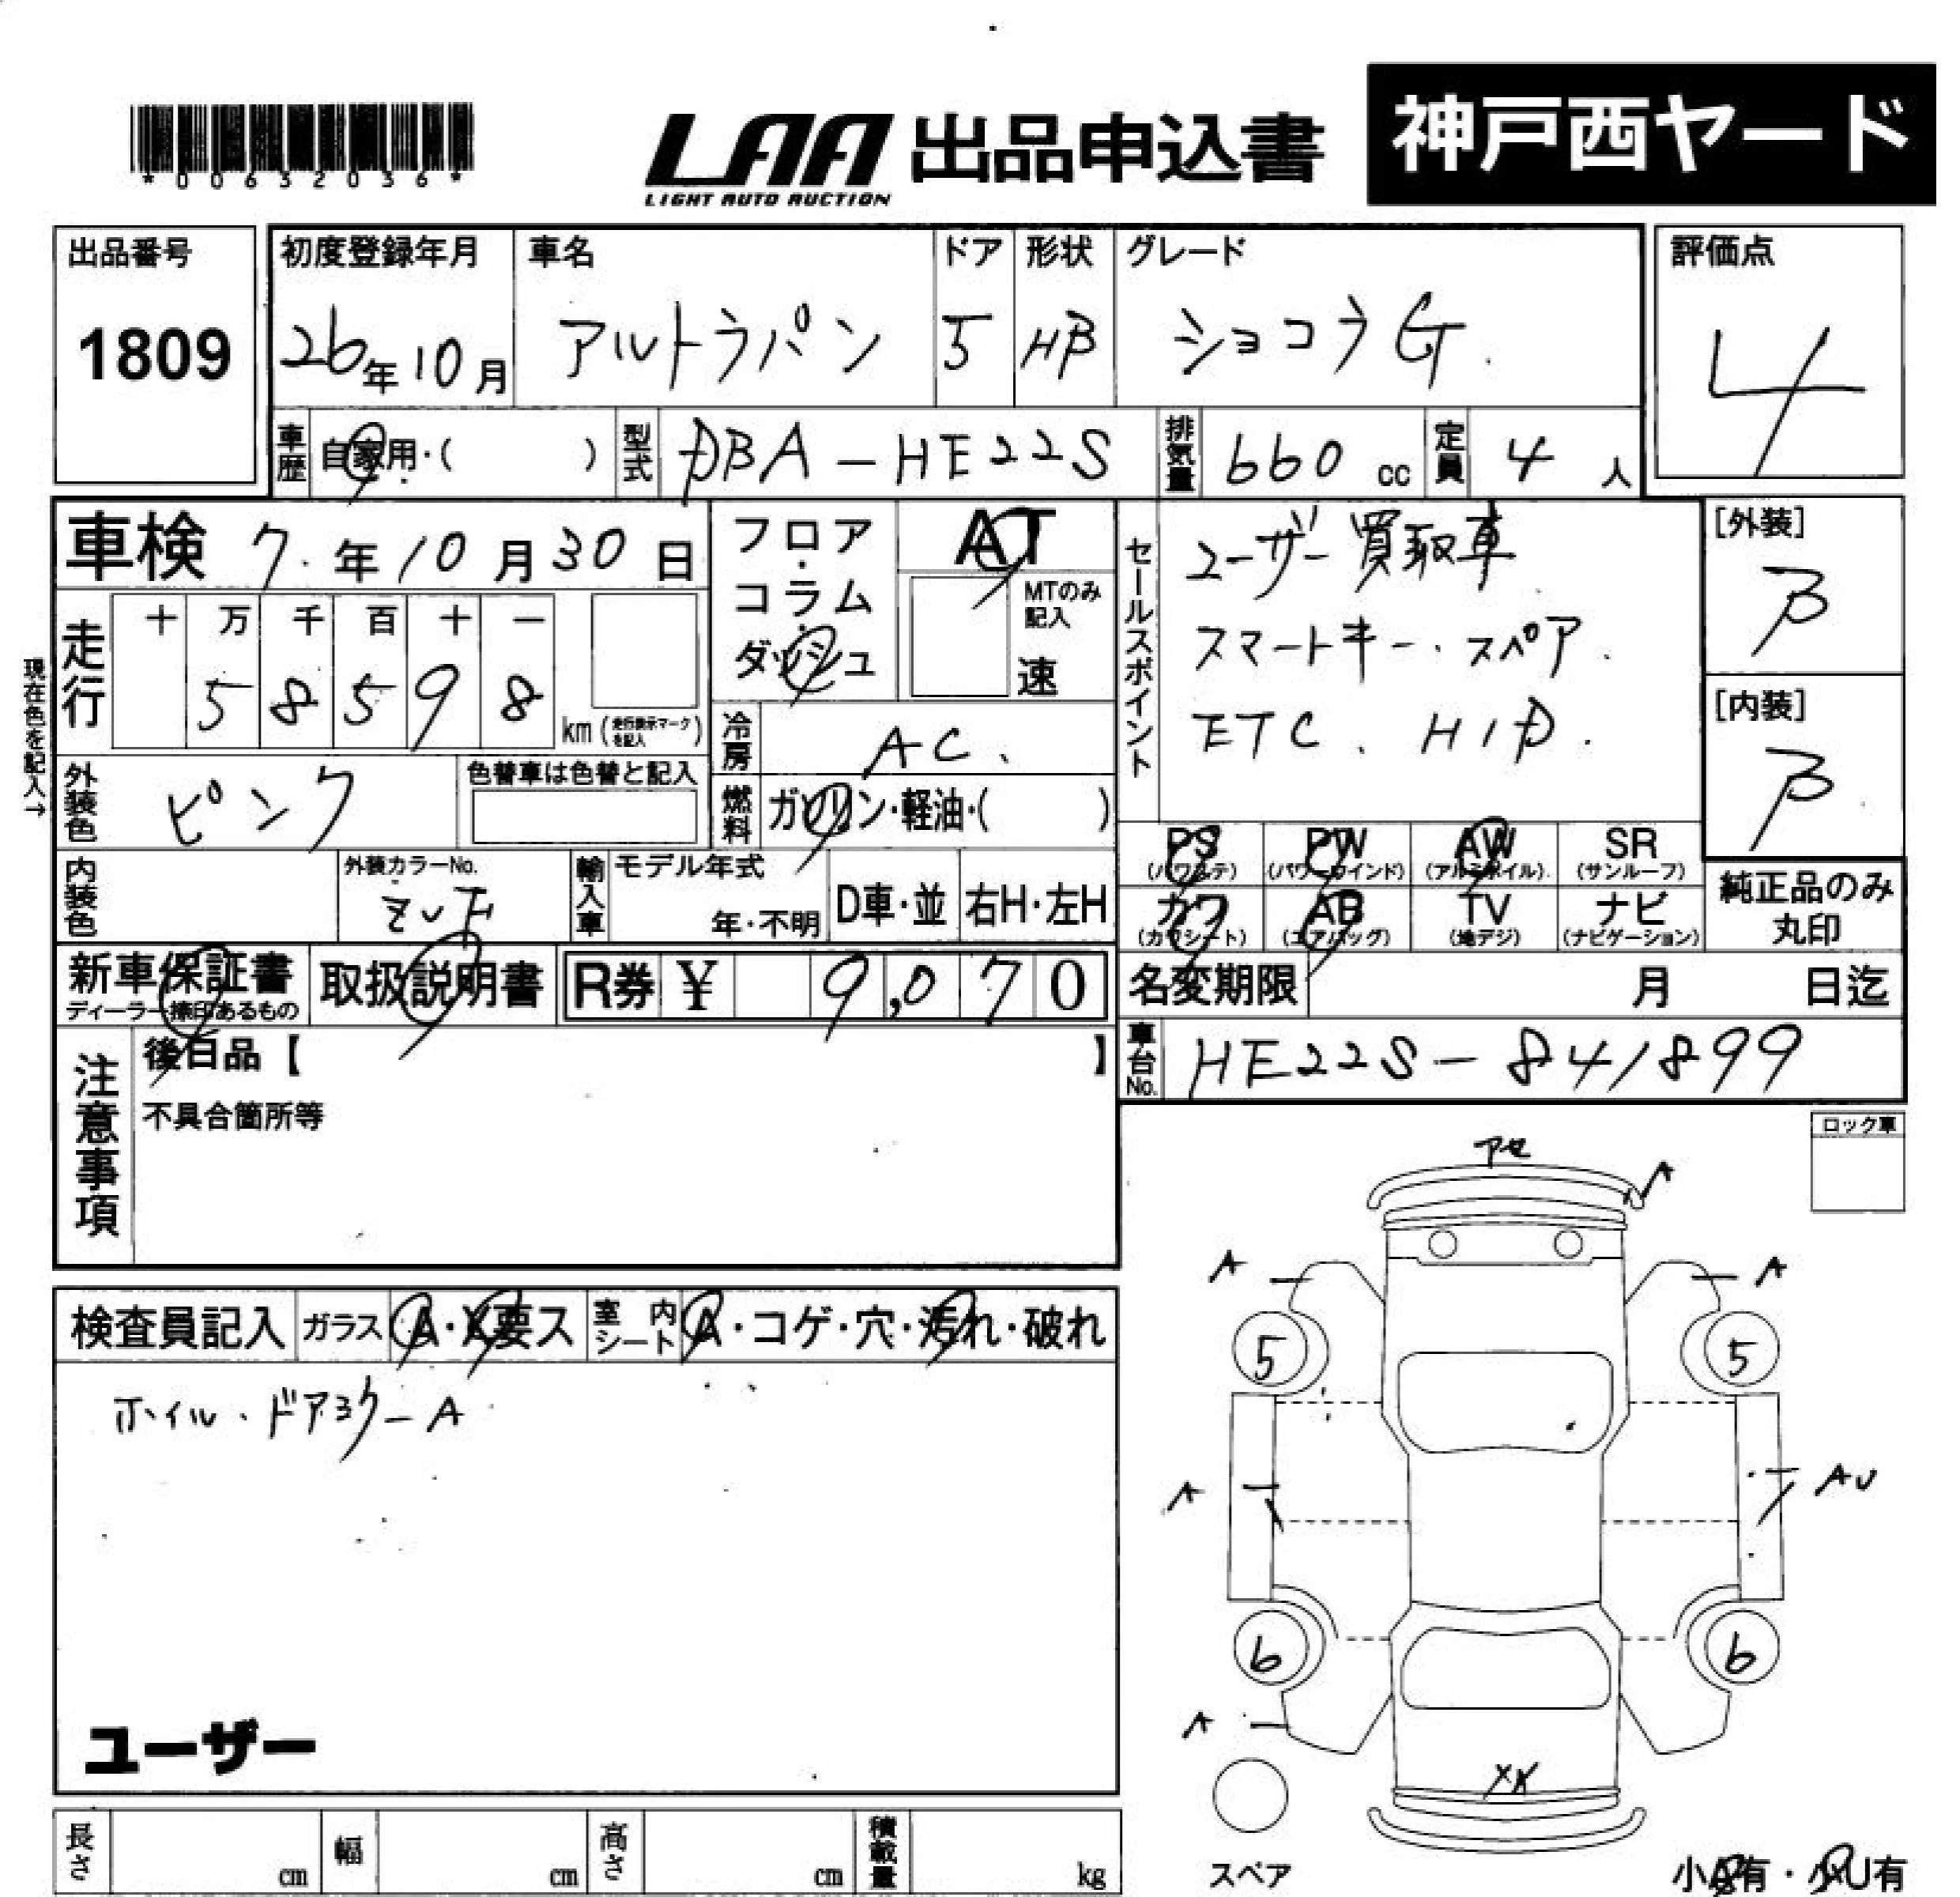 *00632036*
LAA 出品申込書 神戸西ヤード
LIGHT AUTO AUCTION
出品番号 初度登録年月 車名 ドア 形状 グレード 評価点
1809 26年10月 アルトラパン 5 HB ショコラG. 4
車歴 自家用・( ) 型式 DBA-HE22S 排気量 660 cc 定員 4 人
車検 7.年10月30日 フロア・コラム・ダッシュ AT
MTのみ記入 速
セールスポイント
ユーザー買取車
スマートキー・スペア.
ETC、HID.
[外装]
B
[内装]
B
現在色を記入→
走行 十 万 千 百 十 一
5 8 5 9 8 km (走行表示マークを記入)
冷房 AC、
外装色 ピンク 色替車は色替と記入
燃料 ガソリン・軽油・( )
PS (パワステ) PW (パワーウインド) AW (アルミホイル) SR (サンルーフ)
内装色 外装カラーNo. 輸入車 モデル年式 年・不明 D車・並 右H・左H
カワ (カワシート) AB (エアバッグ) TV (地デジ) ナビ (ナビゲーション)
純正品のみ
丸印
新車保証書 取扱説明書 R券 ¥ 9,070
ディーラー捺印あるもの
名変期限 月 日迄
車台No. HE22S-841899
注意事項
後日品【 】
不具合箇所等
ロック車
アセ
A
A
A
5
5
A
AU
6
6
A
スペア
小A有・小U有
検査員記入 ガラス A・X要ス 室内シート A・コゲ・穴・汚れ・破れ
ホイル・ドアミラーA
ユーザー
長さ cm 幅 cm 高さ cm 積載量 kg